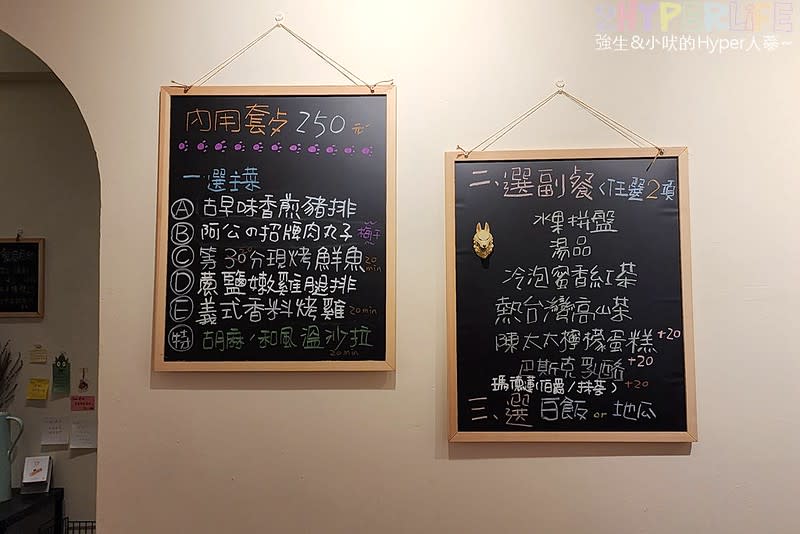 HYPERLIFE
強生&小吠的Hyper人蔘~
內用套歺 250元
一、選主菜
Ⓐ 古早味香煎豬排
Ⓑ 阿公の招牌肉丸子 梅干
Ⓒ 等30分現烤鮮魚 20min
Ⓓ 蔥鹽嫩雞腿排
Ⓔ 義式香料烤雞 20min
特 胡麻/和風溫沙拉
20min
二、選副餐〈任選2項
水果拼盤
湯品
冷泡蜜香紅茶
熱台灣高山茶
陳太太檸檬蛋糕 +20
巴斯克乳酪 +20
瑪德蓮(伯爵/抹茶) +20
三、選 白飯 or 地瓜